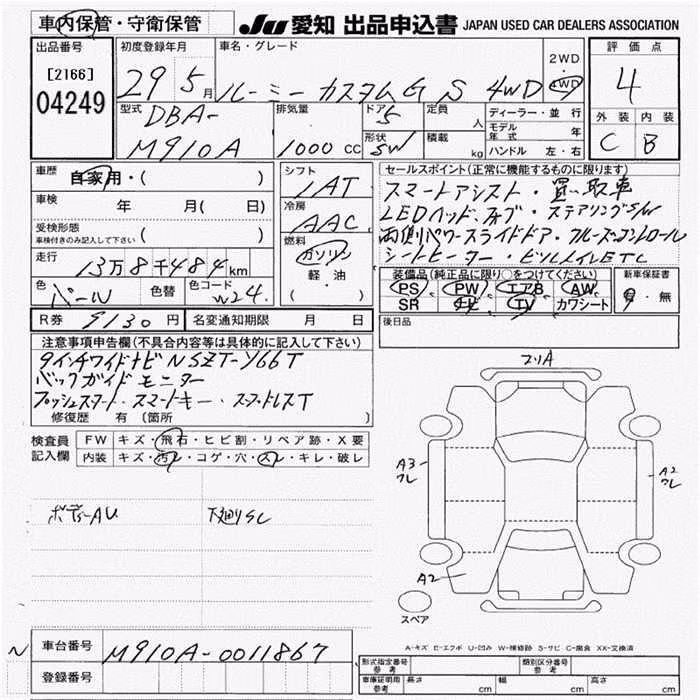 車内保管・守衛保管
JU 愛知 出品申込書 JAPAN USED CAR DEALERS ASSOCIATION
出品番号
[2166]
04249
初度登録年月
29 5月
車名・グレード
ルーミー カスタムG S 4WD
2WD
・
4WD
評価点
4
外装 内装
C B
型式
DBA-
M910A
排気量
1000 CC
ドア 5
形状 SW
定員 人
積載 kg
ディーラー・並行
モデル年式 年
ハンドル 左・右
車歴 自家用・( )
車検 年 月( 日)
受検形態 ( )
車検付きのみ記入して下さい
走行 13万8千484km
色 パール 色替 色コード W24
シフト
IAT
冷房
AAC
燃料
ガソリン
軽・油
( )
セールスポイント(正常に機能するものに限ります)
スマートアシスト・買い取車
LEDヘッド、フォグ・ステアリングS/W
両側パワースライドドア・クルーズコントロール
シートヒーター・ビルトインETC
装備品(純正品に限り○をつけてください)
PS PW エアB AW
SR ナビ TV カワシート
新車保証書
有・無
R券 9130円 名変通知期限 月 日
後日品
注意事項申告欄(不具合内容等は具体的に記入して下さい)
9インチワイドナビ NSZT-Y66T
バックガイドモニター
プッシュスタート・スマートキー・スタッドレスT
修復歴 有〔箇所 〕
検査員記入欄
FW キズ・飛石・ヒビ割・リペア跡・X要
内装 キズ・汚レ・コゲ・穴・スレ・キレ・破レ
ボディーAU 下廻りSC
A3
ワレ
A2
ワレ
A2
スペア
A-キズ E-エクボ U-凹み W-補修跡 S-サビ C-腐食 XX-交換済
N
車台番号 M910A-0011867
登録番号
形式指定番号 参考
類別区分番号 参考
車庫証明用 参考 長さ cm 幅 cm 高さ cm